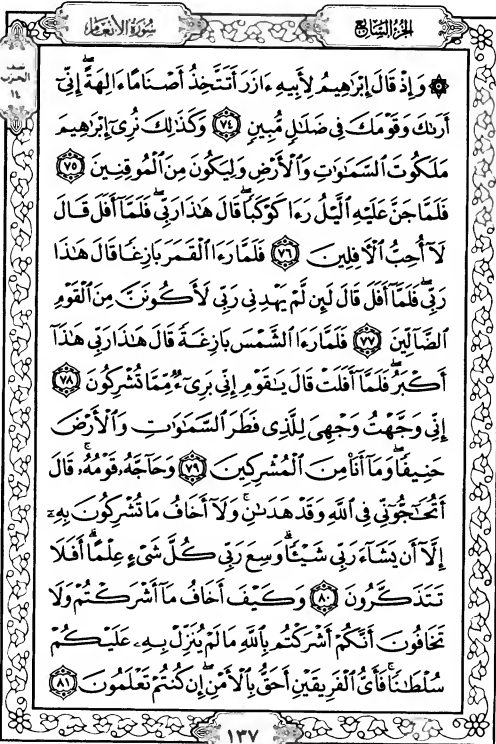 الجزء السابع
سورة الأنعام
نصف
الحزب
١٤
۞ وَإِذْ قَالَ إِبْرَٰهِيمُ لِأَبِيهِ ءَازَرَ أَتَتَّخِذُ أَصْنَامًا ءَالِهَةً ۖ إِنِّىٓ
أَرَىٰكَ وَقَوْمَكَ فِى ضَلَٰلٍ مُّبِينٍ ٧٤ وَكَذَٰلِكَ نُرِىٓ إِبْرَٰهِيمَ
مَلَكُوتَ السَّمَٰوَٰتِ وَالْأَرْضِ وَلِيَكُونَ مِنَ الْمُوقِنِينَ ٧٥
فَلَمَّا جَنَّ عَلَيْهِ الَّيْلُ رَءَا كَوْكَبًا ۖ قَالَ هَٰذَا رَبِّى ۖ فَلَمَّآ أَفَلَ قَالَ
لَآ أُحِبُّ الْءَافِلِينَ ٧٦ فَلَمَّا رَءَا الْقَمَرَ بَازِغًا قَالَ هَٰذَا
رَبِّى ۖ فَلَمَّآ أَفَلَ قَالَ لَئِن لَّمْ يَهْدِنِى رَبِّى لَأَكُونَنَّ مِنَ الْقَوْمِ
الضَّآلِّينَ ٧٧ فَلَمَّا رَءَا الشَّمْسَ بَازِغَةً قَالَ هَٰذَا رَبِّى هَٰذَآ
أَكْبَرُ ۖ فَلَمَّآ أَفَلَتْ قَالَ يَٰقَوْمِ إِنِّى بَرِىٓءٌ مِّمَّا تُشْرِكُونَ ٧٨
إِنِّى وَجَّهْتُ وَجْهِىَ لِلَّذِى فَطَرَ السَّمَٰوَٰتِ وَالْأَرْضَ
حَنِيفًا ۖ وَمَآ أَنَا۠ مِنَ الْمُشْرِكِينَ ٧٩ وَحَآجَّهُۥ قَوْمُهُۥ ۚ قَالَ
أَتُحَٰٓجُّوٓنِّى فِى اللَّهِ وَقَدْ هَدَىٰنِ ۚ وَلَآ أَخَافُ مَا تُشْرِكُونَ بِهِۦٓ
إِلَّآ أَن يَشَآءَ رَبِّى شَيْـًٔا ۗ وَسِعَ رَبِّى كُلَّ شَىْءٍ عِلْمًا ۗ أَفَلَا
تَتَذَكَّرُونَ ٨٠ وَكَيْفَ أَخَافُ مَآ أَشْرَكْتُمْ وَلَا
تَخَافُونَ أَنَّكُمْ أَشْرَكْتُم بِاللَّهِ مَا لَمْ يُنَزِّلْ بِهِۦ عَلَيْكُمْ
سُلْطَٰنًا ۚ فَأَىُّ الْفَرِيقَيْنِ أَحَقُّ بِالْأَمْنِ ۖ إِن كُنتُمْ تَعْلَمُونَ ٨١
١٣٧